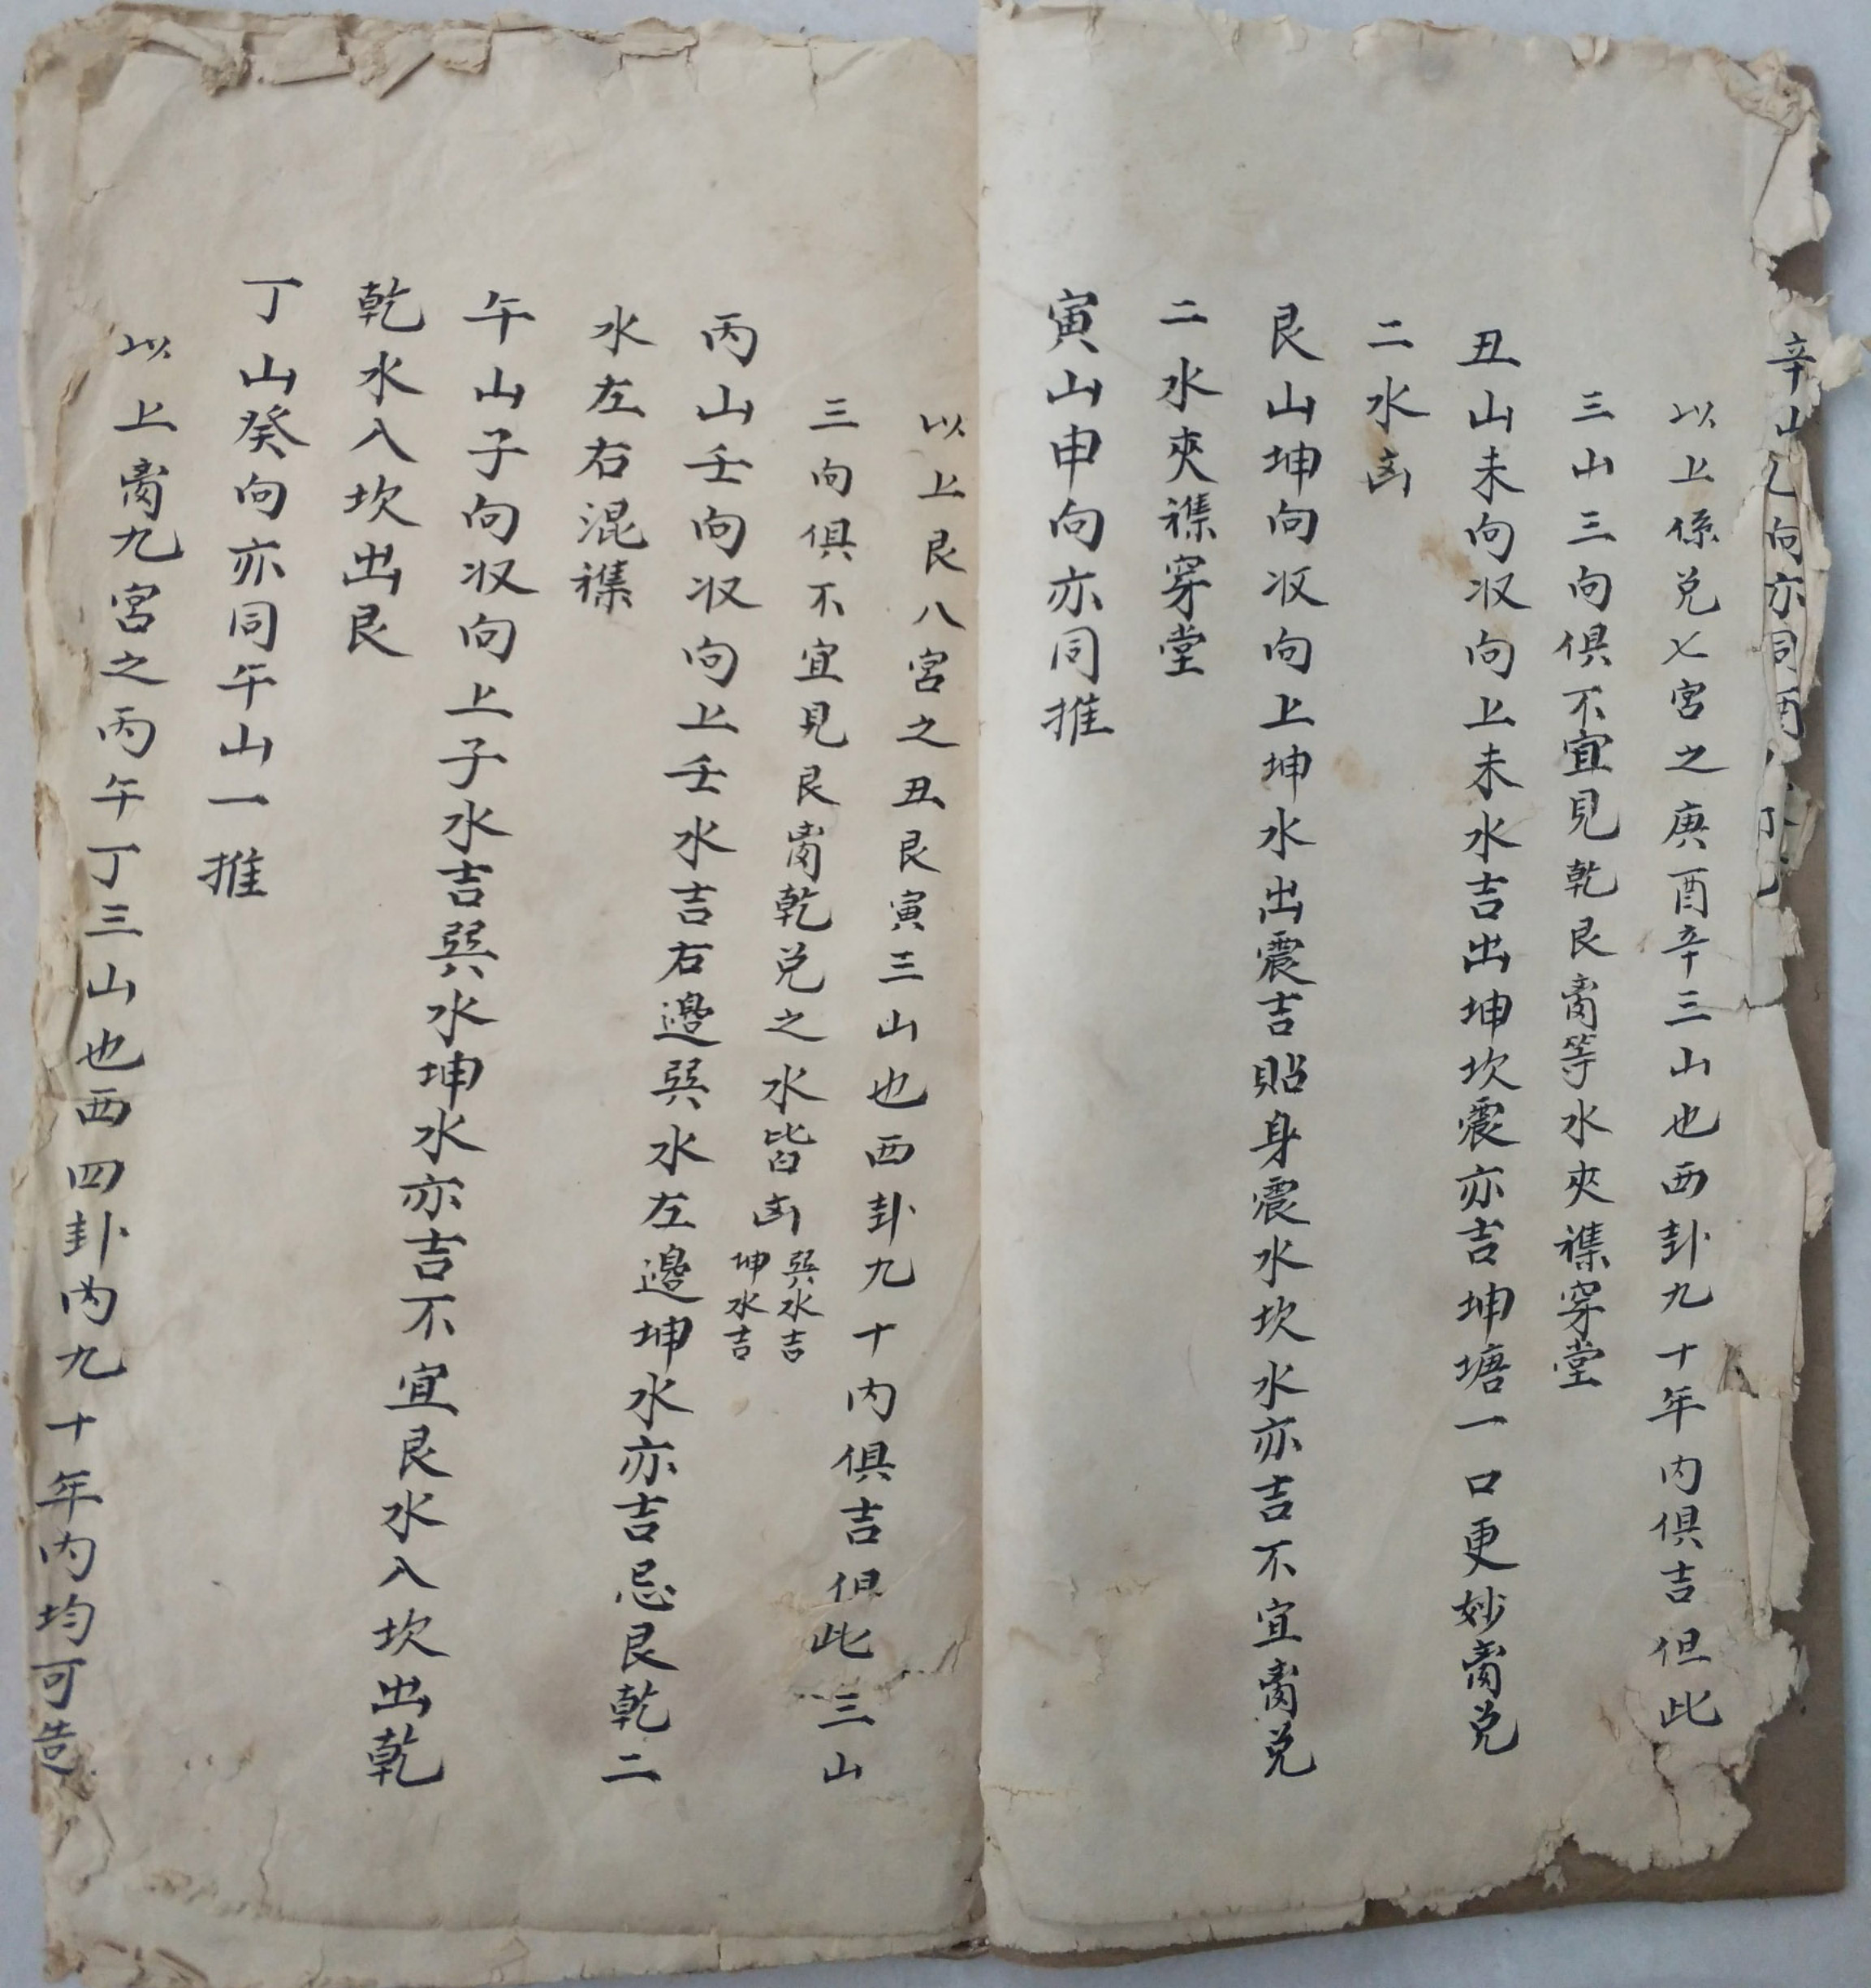 辛山乙向亦同酉
以上係兑七宮之庚酉辛三山也西卦九十年内俱吉但此
三山三向俱不宜見乾艮离等水夾襍穿堂
丑山未向収向上未水吉出坤坎震亦吉坤塘一口更妙离兑
二水凶
艮山坤向収向上坤水出震吉貼身震水坎水亦吉不宜离兑
二水夾襍穿堂
寅山申向亦同推
以上艮八宮之丑艮寅三山也西卦九十内俱吉但此三山
三向俱不宜見艮离乾兑之水皆凶巽水吉坤水吉
丙山壬向収向上壬水吉右邊巽水左邊坤水亦吉忌艮乾二
水左右混襍
午山子向収向上子水吉巽水坤水亦吉不宜艮水入坎出乾
乾水入坎出艮
丁山癸向亦同午山一推
以上离九宮之丙午丁三山也西四卦内九十年内均可造